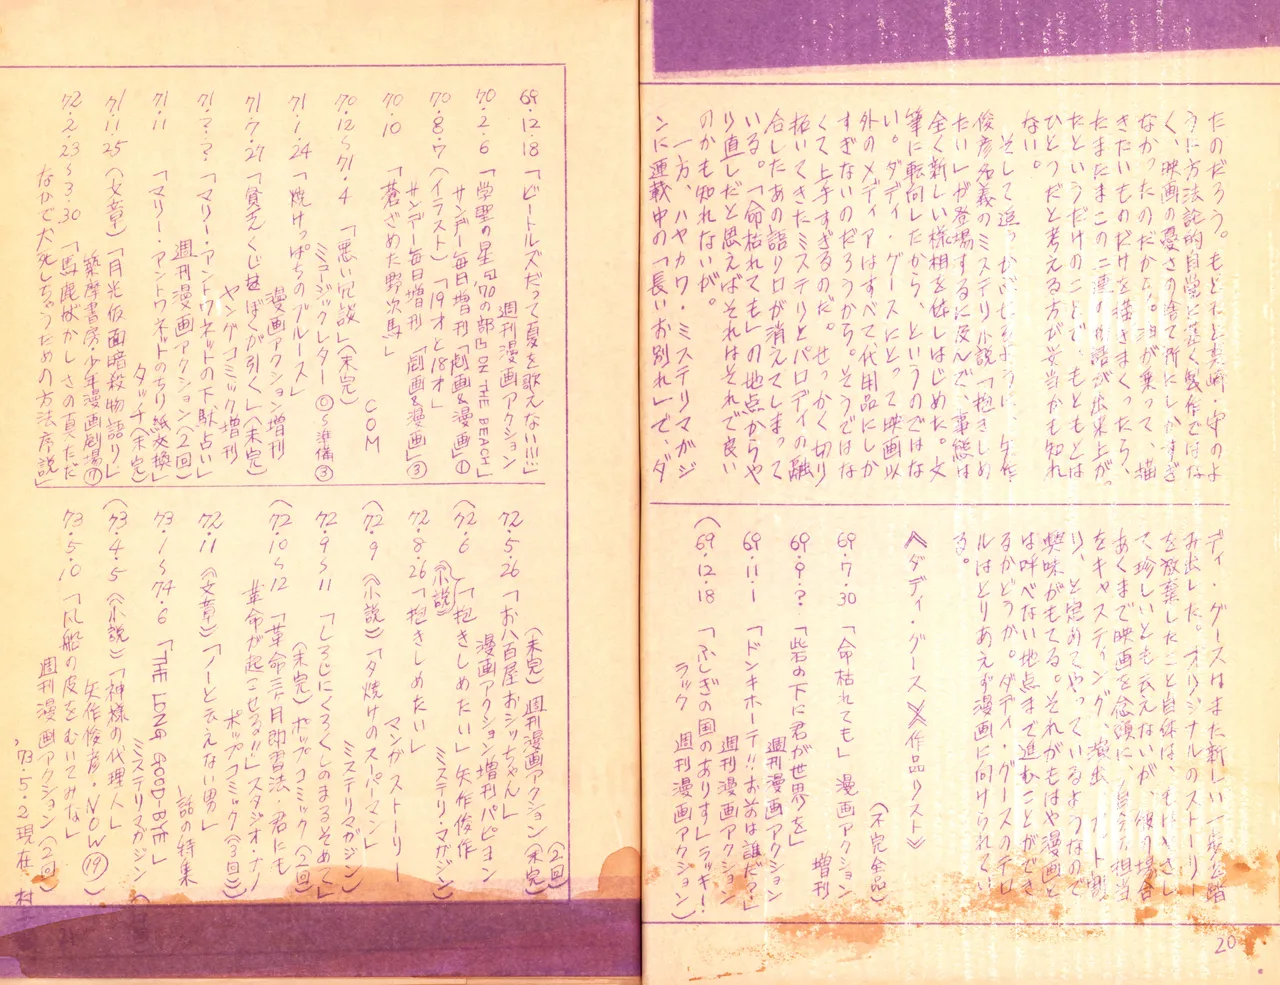 たのだろう。もともと真崎・守のよ
うに方法論的自覚に基く製作ではな
く、映画の憂さの捨て所にしかすぎ
なかったのだから。油が乗って、描
きたいものだけを描きまくったら、
たまたまこの二連の作品が出来上がっ
たというだけのことで、もともとは
ひとつだと考える方が妥当かも知れ
ない。
そして追っかぶせるように、矢作
俊彦名義のミステリ小説「抱きしめ
たい」が登場するに及んで、事態は
全く新しい様相を呈しはじめた。文
筆に転向したから、というのではな
い。ダディ・グースにとって映画以
外のメディアはすべて代用品にしか
すぎないのだろうから。そうではな
くて上手すぎるのだ。せっかく切り
拓いてきたミステリとパロディの融
合したあの語り口が消えてしまって
いる。「命枯れても」の地点からや
り直しだと思えばそれはそれで良い
のかも知れないが。
一方、ハヤカワ・ミステリマガジ
ンに連載中の「長いお別れ」で、ダ
ディ・グースはまた新しい一歩を踏
み出した。オリジナルのストーリー
を放棄したこと自体は、
て珍しいとも云えないが、彼の場合
あくまで映画を念頭に、自分で担当
をキャスティング、演出、カット割
り、と定めてやっているようなので
興味がもてる。それがもはや漫画と
は呼べない地点まで進むことができ
るかどうか。ダディ・グースのテロ
ルはとりあえず漫画に向けられてい
る。
《ダディ・グース》《作品リスト》
(不完全品)
69・7・30 「命枯れても」 漫画アクション
増刊
69・9・? 「砦の下に君が世界を」
週刊漫画アクション
69・11・1 「ドンキホーテ!!おまえは誰だ?」
週刊漫画アクション
(69・12・18 「ふしぎの国のありす」ラッキー!
ラック 週刊漫画アクション)
69・12・18 「ビートルズだって夏を歌えない!!!」
週刊漫画アクション
70・2・6 「学聖の星 '70の部 ON THE BEACH」
サンデー毎日増刊「劇画&漫画」①
70・8・7 (イラスト)「19才と18才」
サンデー毎日増刊「劇画&漫画」③
70・10 「蒼ざめた野次馬」
COM
70・12〜71・4 「悪い冗談」(未完)
ミュージックレター◎〜準備③
71・1・24 「焼けっぱちのブルース」
漫画アクション増刊
71・7・27 「貧乏くじはぼくが引く」(未完)
ヤングコミック増刊
71・?・? 「マリー・アントワネットの下駄占い」
週刊漫画アクション(2回)
71・11 「マリー・アントワネットのちり紙交換」
タッチ(未完)
71・11・25 (文章)「月光仮面暗殺物語り」
筑摩書房少年漫画劇場⑦
72・2・23〜3・30 「馬鹿状かしさの真ただ
なかで犬死しちゃうための方法序説」
(未完) 週刊漫画アクション(2回)
72・5・26 「お八百屋おシッちゃん」(未完)
漫画アクション増刊パピヨン
(72・6 (小説)「抱きしめたい」矢作俊作
ミステリ・マガジン)
72・8・26 「抱きしめたい」
マンガストーリー
(72・9 (小説)「夕焼けのスーパーマン」
ミステリマガジン)
72・9〜11 「しろじにくろくしのまるそめて」
(未完) ポップコミック(2回)
(72・10〜12 「革命三ヶ月即習法・君にも
革命が起こせる!!」スタジオ・ナノ
ポップコミック(3回))
72・11 (文章)「ノーと云えない男」
話の特集
73・1〜74・6 「THE LONG GOOD-BYE」
ミステリマガジン
(73・4・5 (小説)「神様の代理人」
矢作俊彦・NOW⑲)
73・5・10 「風船の皮をむいてみな」
週刊漫画アクション(2回)
,73・5・2現在 村
20
21